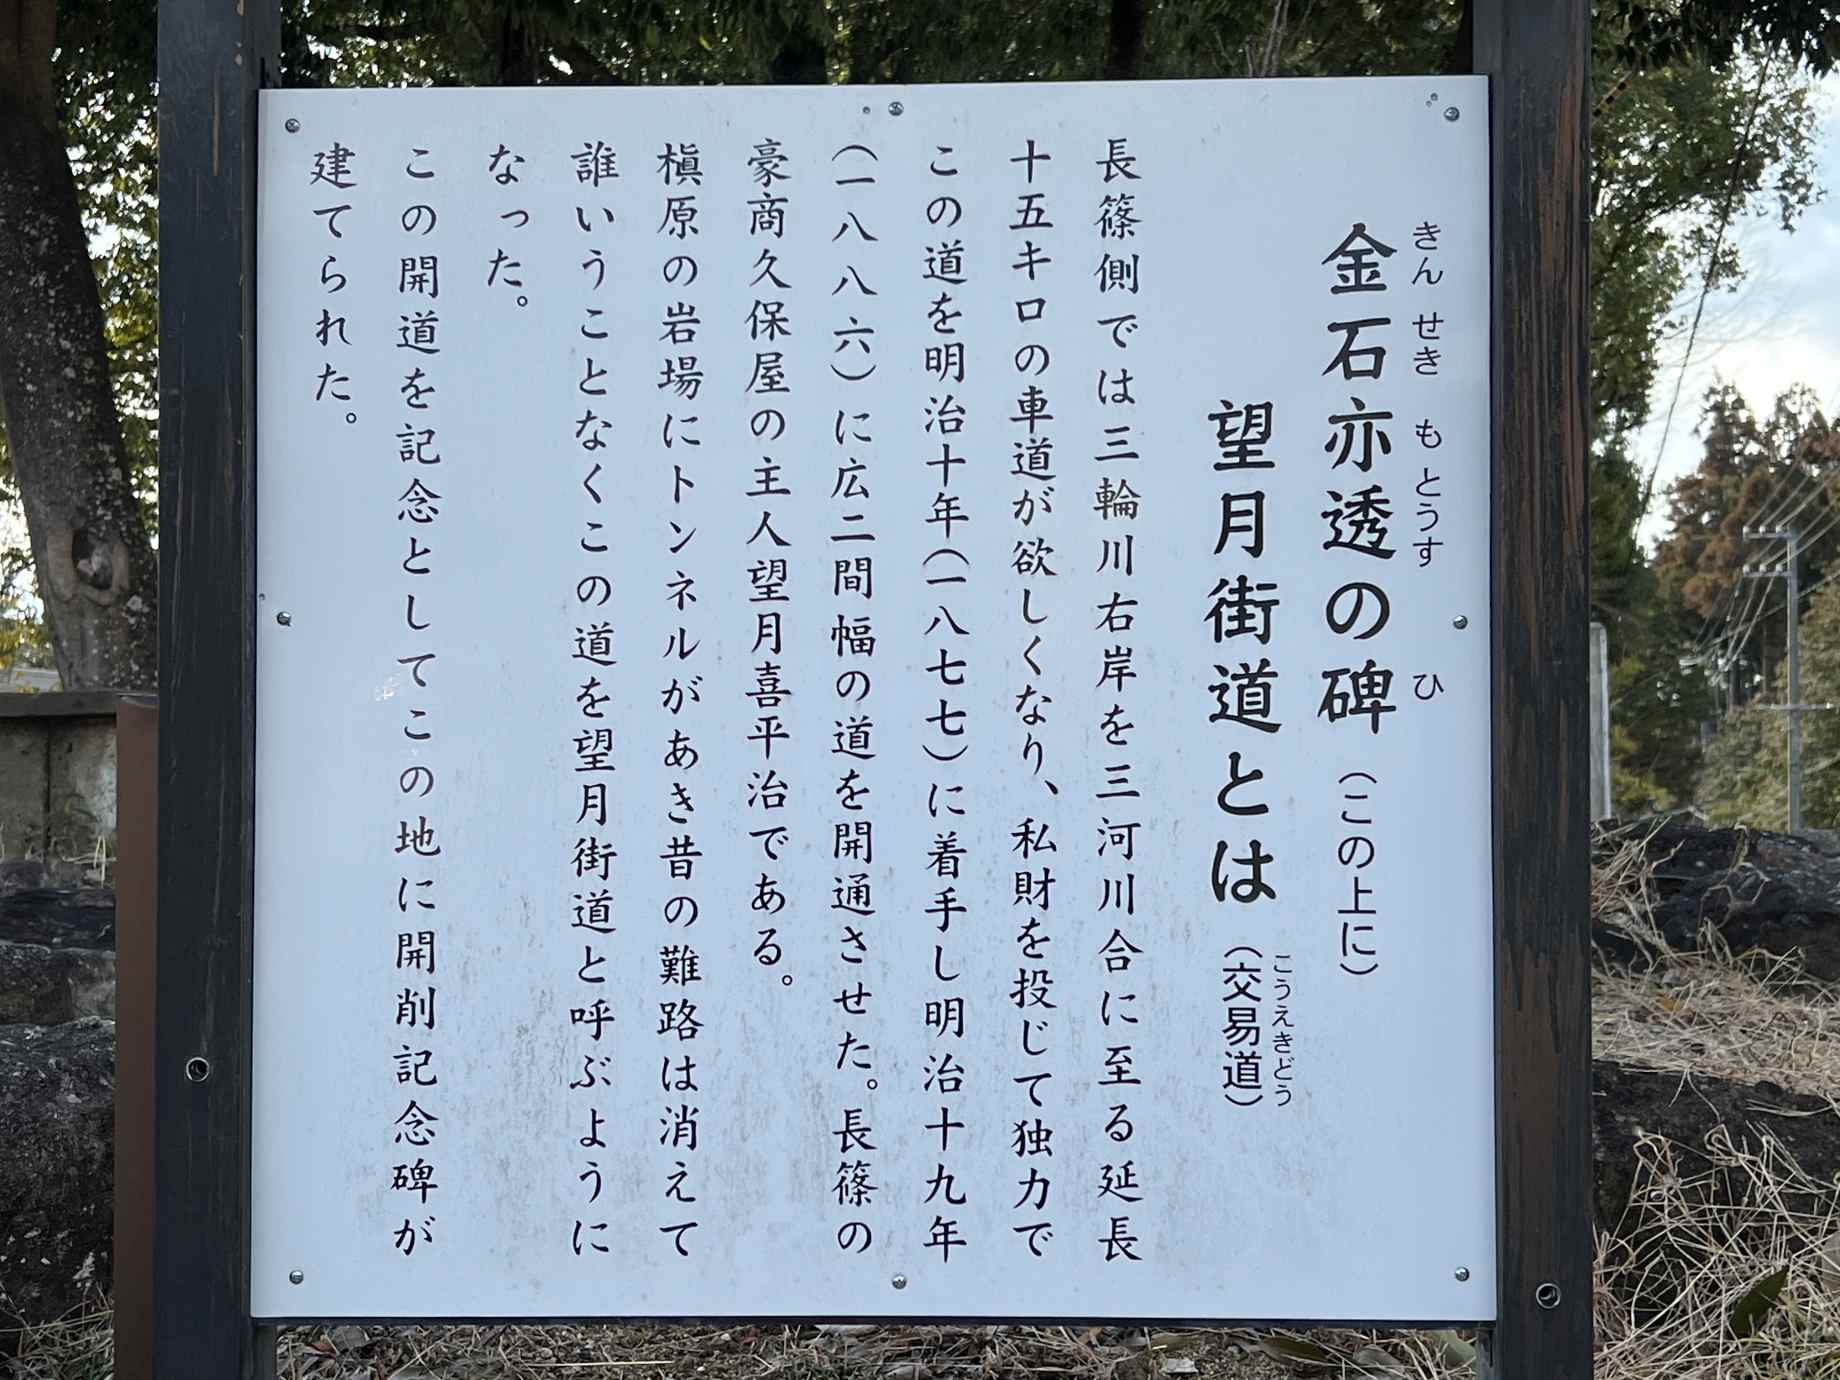 金石亦透の碑（この上に）
きんせき もとうす ひ
望月街道とは（交易道）
こうえきどう
長篠側では三輪川右岸を三河川合に至る延長
十五キロの車道が欲しくなり、私財を投じて独力で
この道を明治十年（一八七七）に着手し明治十九年
（一八八六）に広二間幅の道を開通させた。長篠の
豪商久保屋の主人望月喜平治である。
槇原の岩場にトンネルがあき昔の難路は消えて
誰いうことなくこの道を望月街道と呼ぶように
なった。
この開道を記念としてこの地に開削記念碑が
建てられた。